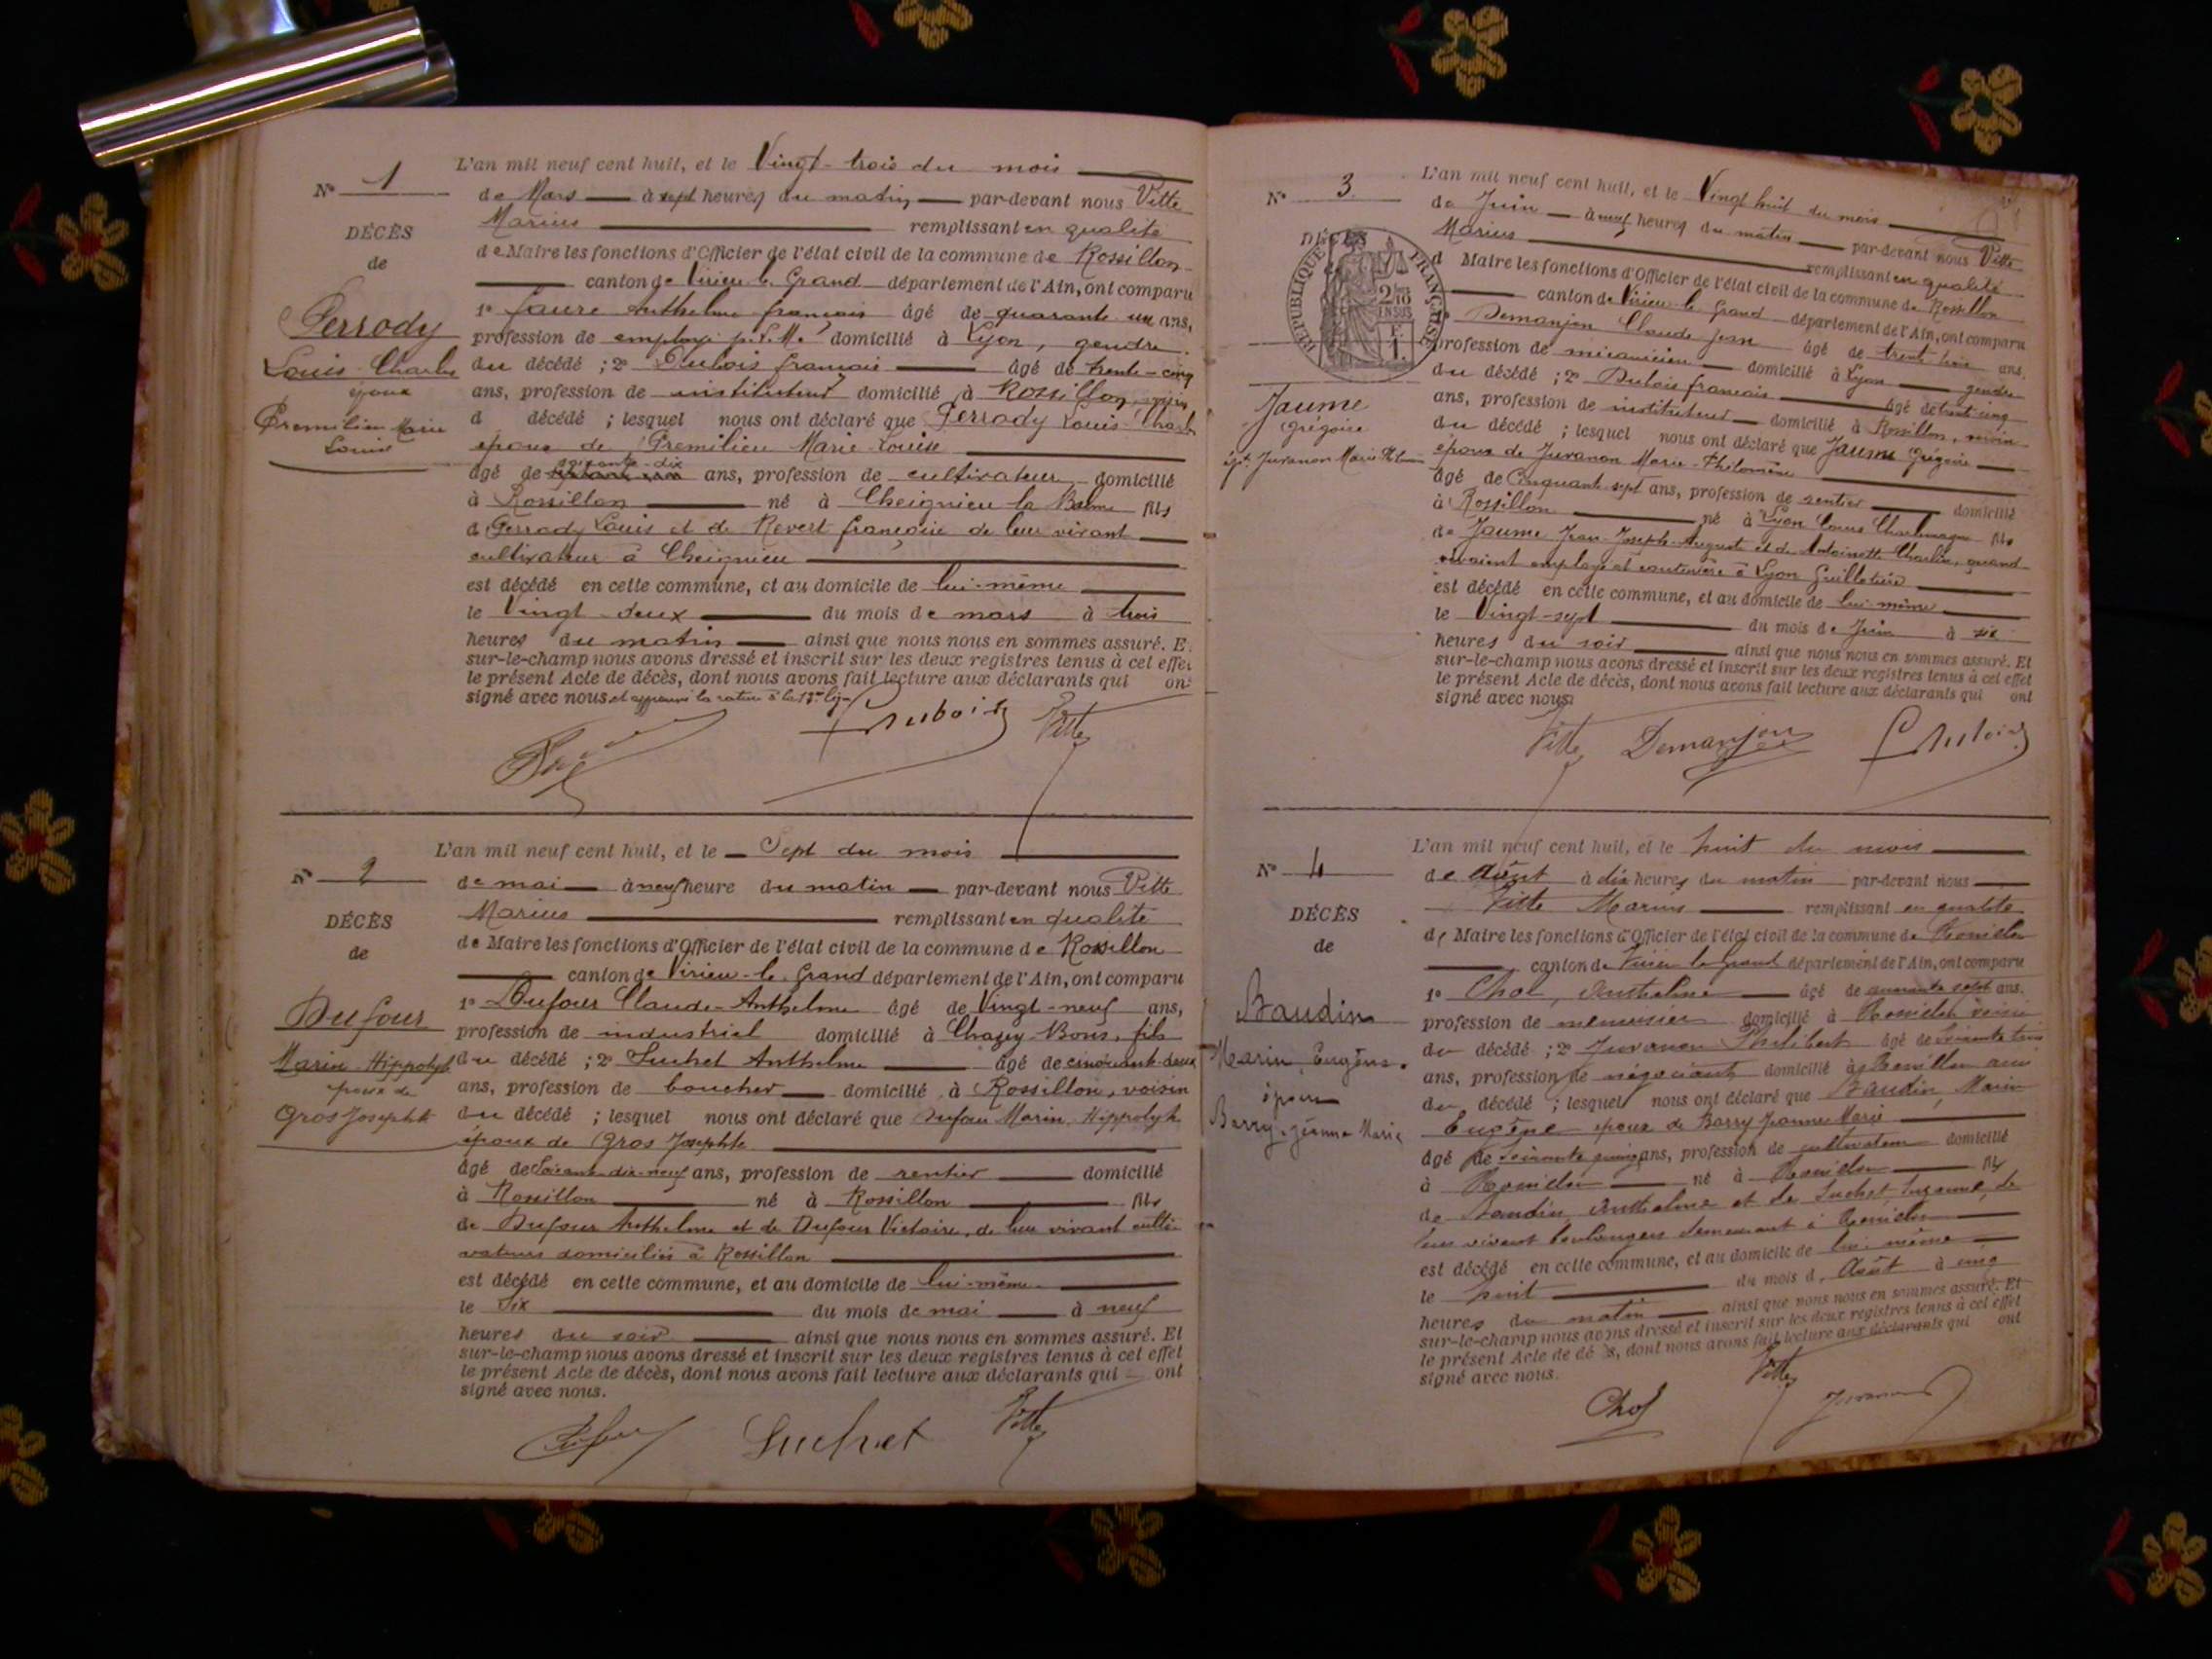 N° 1
DÉCÈS
de
Perrody
Louis Charles
époux
Premilieu Marie
Louise
L'an mil neuf cent huit, et le Vingt-trois du mois
de Mars à sept heures du matin par-devant nous Vitte
Marius remplissant en qualité
de Maire les fonctions d'Officier de l'état civil de la commune de Rossillon
canton de Virieu-le-Grand département de l'Ain, ont comparu
1° Faure Anthelme françois âgé de quarante un ans,
profession de employé P.L.M. domicilié à Lyon, gendre
du décédé ; 2° Dubois françois âgé de trente-cinq
ans, profession de instituteur domicilié à Rossillon, voisin
d décédé ; lesquel nous ont déclaré que Perrody Louis-Charles
époux de Premilieu Marie-Louise
âgé de soixante-dix ans, profession de cultivateur domicilié
à Rossillon né à Cheignieu la Balme fils
de Perrody Louis et de Revert françoise de leur vivant
cultivateur à Cheignieu
est décédé en cette commune, et au domicile de lui-même
le Vingt-deux du mois de mars à trois
heures du matin ainsi que nous nous en sommes assuré. E
sur-le-champ nous avons dressé et inscrit sur les deux registres tenus à cet effet
le présent Acte de décès, dont nous avons fait lecture aux déclarants qui ont
signé avec nous et approuvé la rature à la 12me ligne
Dubois Vitte
N° 2
DÉCÈS
de
Dufour
Marin Hippolyte
époux de
Gros Josephte
L'an mil neuf cent huit, et le Sept du mois
de mai à neuf heure du matin par-devant nous Vitte
Marius remplissant en qualité
de Maire les fonctions d'Officier de l'état civil de la commune de Rossillon
canton de Virieu-le-Grand département de l'Ain, ont comparu
1° Dufour Claude-Anthelme âgé de Vingt-neuf ans,
profession de industriel domicilié à Chazey-Bons, fils
du décédé ; 2° Suchet Anthelme âgé de cinquante-deux
ans, profession de boucher domicilié à Rossillon, voisin
du décédé ; lesquel nous ont déclaré que Dufour Marin Hippolyte
époux de Gros Josephte
âgé de Soixante-dix-neuf ans, profession de rentier domicilié
à Rossillon né à Rossillon fils
de Dufour Anthelme et de Dufour Victoire, de leur vivant culti
vateurs domiciliés à Rossillon
est décédé en cette commune, et au domicile de lui-même
le Six du mois de mai à neuf
heures du soir ainsi que nous nous en sommes assuré. Et
sur-le-champ nous avons dressé et inscrit sur les deux registres tenus à cet effet
le présent Acte de décès, dont nous avons fait lecture aux déclarants qui ont
signé avec nous.
Dufour Suchet Vitte
N° 3
DÉCÈS
RÉPUBLIQUE FRANÇAISE
2/10
EN SUS
F
1.
Jaume
Grégoire
épx Juvanon Marie Philom
L'an mil neuf cent huit, et le Vingt huit du mois
de Juin à neuf heures du matin par-devant nous Vitte
Marius remplissant en qualité
d Maire les fonctions d'Officier de l'état civil de la commune de Rossillon
canton de Virieu-le-Grand département de l'Ain, ont comparu
Demanjon Claude Jean âgé de trente trois ans.
profession de mécanicien domicilié à Lyon gendre
du décédé ; 2° Dubois françois âgé de trente cinq
ans, profession de instituteur domicilié à Rossillon, voisin
du décédé ; lesquel nous ont déclaré que Jaume Grégoire
époux de Juvanon Marie-Philomène
âgé de Cinquante sept ans, profession de rentier domicilié
à Rossillon né à Lyon Cours Charlemagne fils
de Jaume Jean-Joseph-Auguste et de Antoinette Charlin, quand
vivaient employé et couturière à Lyon Guillotière
est décédé en cette commune, et au domicile de lui-même
le Vingt-sept du mois de Juin à six
heures du soir ainsi que nous nous en sommes assuré. Et
sur-le-champ nous avons dressé et inscrit sur les deux registres tenus à cet effet
le présent Acte de décès, dont nous avons fait lecture aux déclarants qui ont
signé avec nous.
Vitte Demanjon Dubois
N° 4
DÉCÈS
de
Baudin
Marin, Eugène.
époux
Barry Jeanne Marie
L'an mil neuf cent huit, et le huit du mois
de Août à dix heures du matin par-devant nous
Vitte Marius remplissant en qualité
de Maire les fonctions d'Officier de l'état civil de la commune de Rossillon
canton de Virieu le Grand département de l'Ain, ont comparu
1° Chol, Anthelme âgé de quarante sept ans.
profession de menuisier domicilié à Rossillon voisin
du décédé ; 2° Juvanon Philibert âgé de soixante trois
ans, profession de négociant domicilié à Rossillon ami
du décédé ; lesquel nous ont déclaré que Baudin, Marin
Eugène époux de Barry Jeanne Marie
âgé de soixante quinze ans, profession de cultivateur domicilié
à Rossillon né à Rossillon fils
de Baudin Anthelme et de Suchet Suzanne, de
leur vivant boulangers demeurant à Rossillon
est décédé en cette commune, et au domicile de lui-même
le huit du mois d. Août à cinq
heures du matin ainsi que nous nous en sommes assuré. Et
sur-le-champ nous avons dressé et inscrit sur les deux registres tenus à cet effet
le présent Acte de décès, dont nous avons fait lecture aux déclarants qui ont
signé avec nous.
Chol Vitte Juvanon